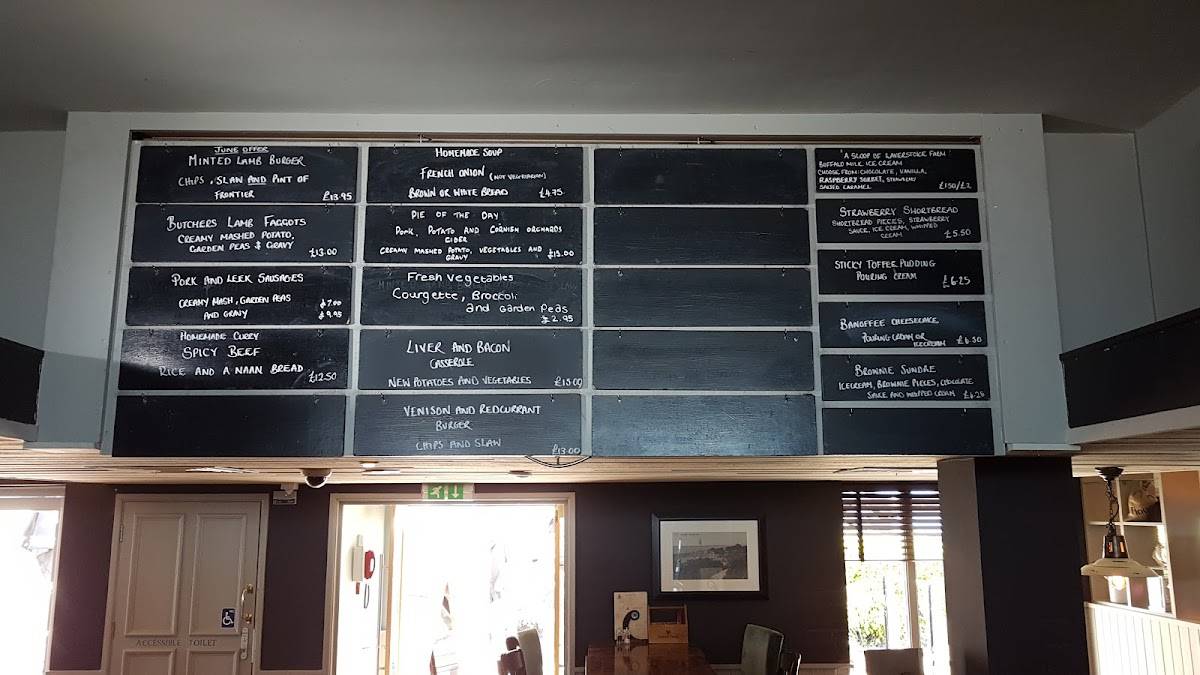 JUNE OFFER
MINTED LAMB BURGER
CHIPS, SLAW AND PINT OF
FRONTIER £13.95
BUTCHERS LAMB FAGGOTS
CREAMY MASHED POTATO,
GARDEN PEAS & GRAVY £13.00
PORK AND LEEK SAUSAGES
CREAMY MASH, GARDEN PEAS £7.00
AND GRAVY £9.95
HOMEMADE CURRY
SPICY BEEF
RICE AND A NAAN BREAD £12.50
HOMEMADE SOUP
FRENCH ONION (NOT VEGETARIAN)
BROWN OR WHITE BREAD £4.75
PIE OF THE DAY
PORK, POTATO AND CORNISH ORCHARDS
CIDER
CREAMY MASHED POTATO, VEGETABLES AND £15.00
GRAVY
Fresh Vegetables
Courgette, Broccoli
and Garden Peas
£2.95
LIVER AND BACON
CASSEROLE
NEW POTATOES AND VEGETABLES £15.00
VENISON AND REDCURRANT
BURGER
CHIPS AND SLAW £13.00
A SCOOP OF LAVERSTOKE FARM
BUFFALO MILK ICE CREAM
CHOOSE FROM: CHOCOLATE, VANILLA,
RASPBERRY SORBET, STRAWBERRY
SALTED CARAMEL £1.50/£2
STRAWBERRY SHORTBREAD
SHORTBREAD PIECES, STRAWBERRY
SAUCE, ICE CREAM, WHIPPED
CREAM £5.50
STICKY TOFFEE PUDDING
POURING CREAM £6.25
BANOFFEE CHEESECAKE
POURING CREAM OR
ICECREAM £6.50
BROWNIE SUNDAE
ICECREAM, BROWNIE PIECES, CHOCOLATE
SAUCE AND WHIPPED CREAM £6.25
ACCESSIBLE TOILET